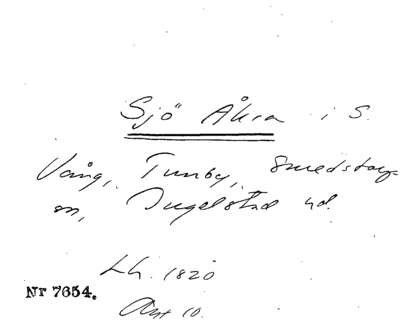 Sjö Åkra i S.
Vång, Tunby, Smedstorp
sn, Ingelstad hd.
Lh. 1820
Nr 7654.
Akt 10.